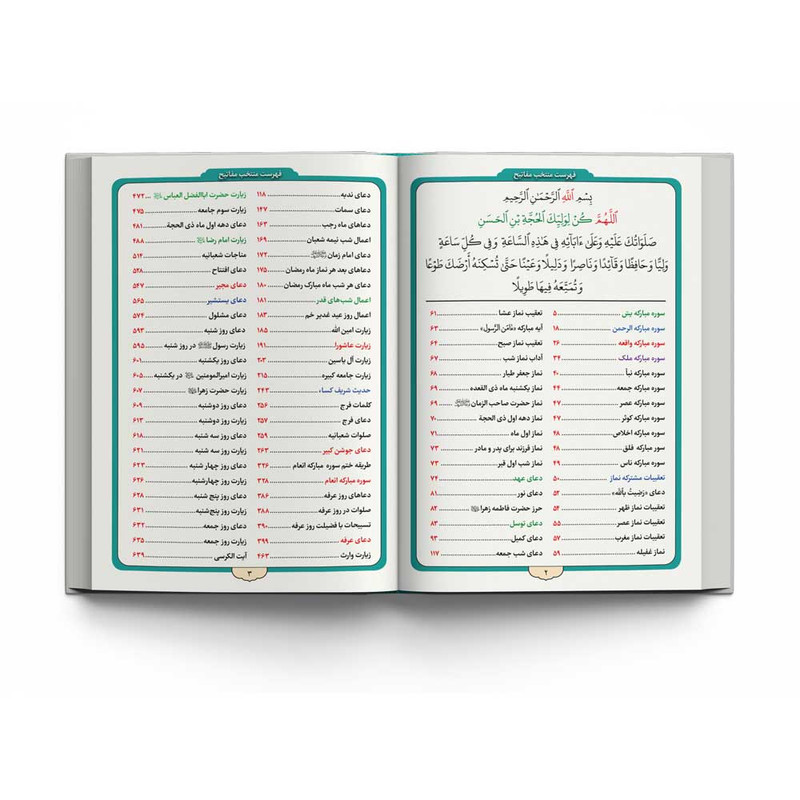 فهرست منتخب مفاتیح
بِسْمِ اللَّهِ الرَّحْمَٰنِ الرَّحِيمِ
اَللّٰهُمَّ كُنْ لِوَلِيِّكَ الْحُجَّةِ بْنِ الْحَسَنِ
صَلَوَاتُكَ عَلَيْهِ وَعَلَىٰ ءَابَآئِهِ فِي هٰذِهِ السَّاعَةِ وَفِي كُلِّ سَاعَةٍ
وَلِيًّا وَحَافِظًا وَقَآئِدًا وَنَاصِرًا وَدَلِيلًا وَعَيْنًا حَتَّىٰ تُسْكِنَهُ أَرْضَكَ طَوْعًا
وَتُمَتِّعَهُ فِيهَا طَوِيلًا
سوره مبارکه یس ۵
سوره مبارکه الرحمن ۱۸
سوره مبارکه واقعه ۲۶
سوره مبارکه ملک ۳۴
سوره مبارکه نبأ ۴۰
سوره مبارکه جمعه ۴۴
سوره مبارکه عصر ۴۷
سوره مبارکه کوثر ۴۷
سوره مبارکه اخلاص ۴۸
سوره مبارکه فلق ۴۸
سوره مبارکه ناس ۴۹
تعقیبات مشترکه نماز ۵۰
دعای «رَضیتُ بِاللهِ» ۵۲
تعقیبات نماز ظهر ۵۴
تعقیبات نماز عصر ۵۵
تعقیبات نماز مغرب ۵۷
نماز غفیله ۵۹
تعقیب نماز عشا ۶۱
آیه مبارکه «ءامَنَ الرَّسُول» ۶۳
تعقیب نماز صبح ۶۴
آداب نماز شب ۶۷
نماز جعفر طیار ۶۸
نماز یکشنبه ماه ذی القعده ۶۹
نماز حضرت صاحب الزمان ۶۹
نماز دهه اول ذی الحجة ۷۰
نماز اول ماه ۷۱
نماز فرزند برای پدر و مادر ۷۳
نماز شب اول قبر ۷۳
دعای عهد ۷۴
دعای نور ۸۱
حرز حضرت فاطمه زهرا ۸۲
دعای توسل ۸۳
دعای کمیل ۹۳
دعای شب جمعه ۱۱۷
۲
فهرست منتخب مفاتیح
دعای ندبه ۱۱۸
دعای سمات ۱۴۷
دعاهای ماه رجب ۱۶۳
اعمال شب نیمه شعبان ۱۶۹
دعای امام زمان ۱۷۲
دعاهای بعد هر نماز ماه رمضان ۱۷۵
دعای هر شب ماه مبارک رمضان ۱۸۰
اعمال شب‌های قدر ۱۸۱
اعمال روز عید غدیر خم ۱۸۳
زیارت امین الله ۱۸۵
زیارت عاشورا ۱۹۱
زیارت آل یاسین ۲۰۳
زیارت جامعه کبیره ۲۱۵
حدیث شریف کساء ۲۴۳
کلمات فرج ۲۵۶
دعای فرج ۲۵۷
صلوات شعبانیه ۲۵۹
دعای جوشن کبیر ۲۶۳
طریقه ختم سوره مبارکه انعام ۳۲۶
سوره مبارکه انعام ۳۲۸
دعاهای روز عرفه ۳۸۶
صلوات در روز عرفه ۳۸۸
تسبیحات با فضیلت روز عرفه ۳۹۰
دعای عرفه ۳۹۹
زیارت وارث ۴۶۳
زیارت حضرت اباالفضل العباس ۴۷۲
زیارت سوم جامعه ۴۷۵
دعای دهه اول ماه ذی الحجة ۴۸۱
زیارت امام رضا ۴۸۸
مناجات شعبانیه ۵۱۴
دعای افتتاح ۵۲۸
دعای مجیر ۵۴۷
دعای یستشیر ۵۶۵
دعای مشلول ۵۷۴
دعای روز شنبه ۵۹۳
زیارت رسول در روز شنبه ۵۹۵
دعای روز یکشنبه ۶۰۱
زیارت امیرالمومنین در یکشنبه ۶۰۵
زیارت حضرت زهرا ۶۰۷
دعای روز دوشنبه ۶۰۹
زیارت روز دوشنبه ۶۱۳
دعای روز سه شنبه ۶۱۸
زیارت روز سه شنبه ۶۲۱
دعای روز چهار شنبه ۶۲۳
زیارت روز چهارشنبه ۶۲۶
دعای روز پنج شنبه ۶۲۸
زیارت روز پنج‌شنبه ۶۳۱
دعای روز جمعه ۶۳۲
زیارت روز جمعه ۶۳۵
آیت الکرسی ۶۳۹
۳